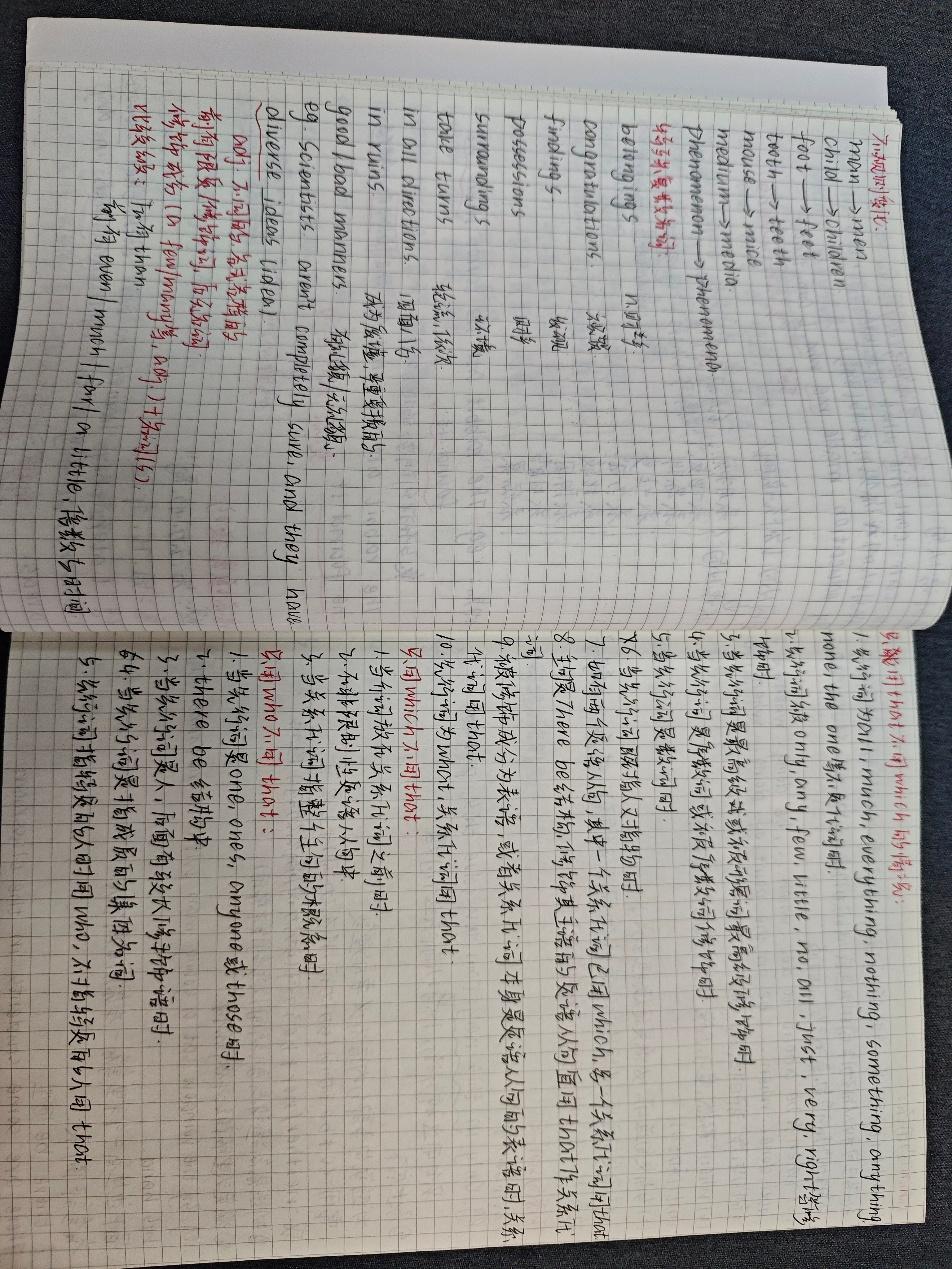 不规则变化:
man→men
child→children
foot→feet
tooth→teeth
mouse→mice
medium→media
phenomenon→phenomena
belongings n.财物
congratulations. 祝贺
findings 发现
possessions 财产
surroundings 环境
take turns 轮流,依次
in all directions 四面八方
in ruins.
good/bad manners 有礼貌/没礼貌.
eg. Scientists aren't completely sure, and they have
diverse ideas (idea)
adj. 不同的
修饰成分 (a few/many等, adj.)+名n(s).
比较级: 形/副 than
形/副 even/much/far/a little,修飾比较级时用
只用that不用which的情况:
1.先行词为all,much,everything,nothing,something,anything,
none,the one等不定代词时.
2.先行词被only,any,few,little,no,all,just,very,right等修
饰时.
3.当先行词是最高级或被形容词最高级修饰时.
4.当先行词是序数词或被序数词修饰时
5.当先行词是数词时
6.当先行词既指人又指物时
7.如有两个定语从句,其中一个关系代词已用which,另一个关系代词用that
8.主句是There be结构,修饰其主语的定语从句宜用that作关系代
词
9.被修饰成分为表语,或者关系代词本身是定语从句的表语时,关系
代词用that.
10.先行词为what,关系代词用that.
只用which不用that:
1.当介词放在关系代词之前时.
2.在非限制性定语从句中.
3.当关系代词指整个主句的概念时
只用who不用that:
1.当先行词是one,ones,anyone或those时.
2.there be结构中
3.当先行词是人,后面有较长修饰语时.
4.当先行词是指成员的集体名词.
5.先行词指特定的人时用who,不指特定的人用that.